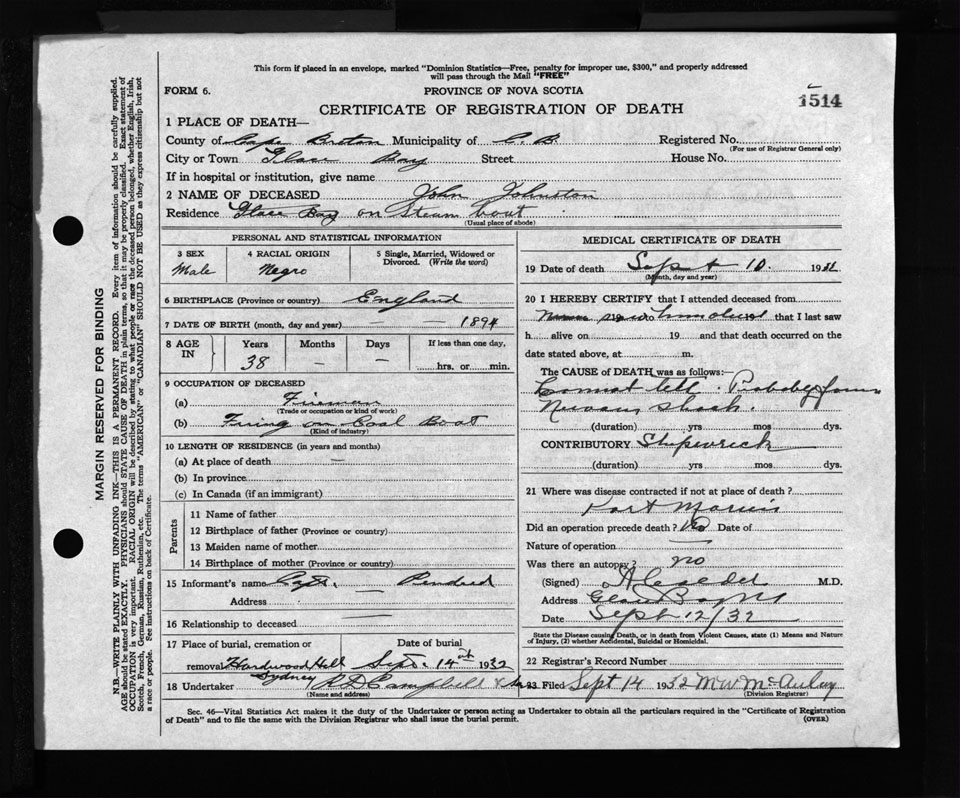 This form if placed in an envelope, marked "Dominion Statistics—Free, penalty for improper use, $300," and properly addressed
will pass through the Mail "FREE"
FORM 6. PROVINCE OF NOVA SCOTIA
1514
CERTIFICATE OF REGISTRATION OF DEATH
1 PLACE OF DEATH—
County of Cape Breton Municipality of C. B. Registered No.
(For use of Registrar General only)
City or Town Glace Bay Street House No.
If in hospital or institution, give name
2 NAME OF DECEASED John Johnston
Residence Glace Bay on Steam boat
(Usual place of abode)
PERSONAL AND STATISTICAL INFORMATION
3 SEX 4 RACIAL ORIGIN 5 Single, Married, Widowed or
Divorced. (Write the word)
Male Negro
6 BIRTHPLACE (Province or country) England
7 DATE OF BIRTH (month, day and year) — — 1894
8 AGE IN Years Months Days If less than one day,
38 — — hrs. or min.
9 OCCUPATION OF DECEASED
(a) Fireman
(Trade or occupation or kind of work)
(b) Firing on Coal Boat
(Kind of industry)
10 LENGTH OF RESIDENCE (in years and months)
(a) At place of death —
(b) In province
(c) In Canada (if an immigrant)
Parents
11 Name of father
12 Birthplace of father (Province or country)
13 Maiden name of mother
14 Birthplace of mother (Province or country)
15 Informant's name Capt.
Address —
16 Relationship to deceased —
17 Place of burial, cremation or Date of burial
removal Hardwood Hill Sept. 14th 1932
Sydney
18 Undertaker A D Campbell
(Name and address)
MEDICAL CERTIFICATE OF DEATH
19 Date of death Sept 10. 1932
(Month, day and year)
20 I HEREBY CERTIFY that I attended deceased from
19 to 19 that I last saw
h alive on 19 and that death occurred on the
date stated above, at m.
The CAUSE of DEATH was as follows:—
Cannot tell. Probably from
Nervous Shock.
(duration) yrs mos dys.
CONTRIBUTORY Shipwreck
(duration) yrs mos dys.
21 Where was disease contracted if not at place of death?
Port Morien
Did an operation precede death? No Date of
Nature of operation —
Was there an autopsy? no
(Signed) M.D.
Address Glace Bay NS
Date Sept 12/32
State the Disease causing Death, or in death from Violent Causes, state (1) Means and Nature
of Injury, (2) whether Accidental, Suicidal or Homicidal.
22 Registrar's Record Number
23 Filed Sept 14 1932 M W McAulay
(Division Registrar)
Sec. 46—Vital Statistics Act makes it the duty of the Undertaker or person acting as Undertaker to obtain all the particulars required in the "Certificate of Registration
of Death" and to file the same with the Division Registrar who shall issue the burial permit. (OVER)
MARGIN RESERVED FOR BINDING
N.B.—WRITE PLAINLY WITH UNFADING INK—THIS IS A PERMANENT RECORD. Every item of information should be carefully supplied.
AGE should be stated EXACTLY. PHYSICIANS should STATE CAUSE OF DEATH in plain terms, so that it may be properly classified. Exact statement of
OCCUPATION is very important. RACIAL ORIGIN will be described by stating to what people or race the deceased person belonged, whether English, Irish,
Scotch, French, German, Russian, Ruthenian, etc. The terms "AMERICAN" or "CANADIAN" SHOULD NOT BE USED as they express citizenship but not
a race or people. See instructions on back of Certificate.